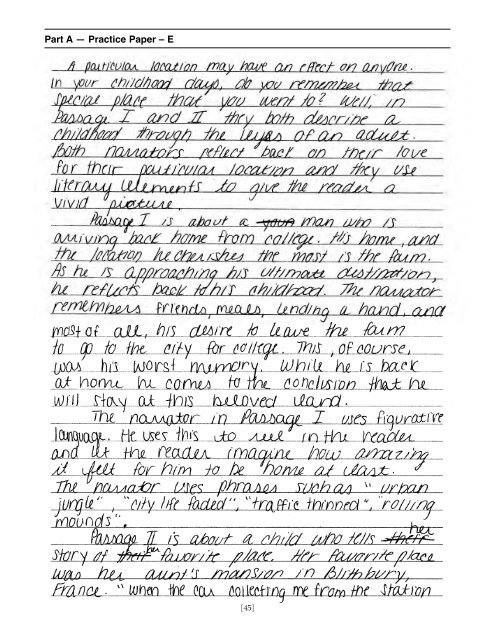 Part A — Practice Paper – E
A particular location may have an effect on anyone.
In your childhood days, do you remember that
special place that you went to? Well, in
Passage I and II they both describe a
childhood through the eyes of an adult.
Both narrators reflect back on their love
for their particular location and they use
literary elements to give the reader a
vivid picture.
Passage I is about a man who is
arriving back home from college. His home, and
the location he cherishes the most is the farm.
As he is approaching his ultimate destination,
he reflects back to his childhood. The narrator
remembers friends, meals, lending a hand, and
most of all, his desire to leave the farm
to go to the city for college. This, of course,
was his worst memory. While he is back
at home he comes to the conclusion that he
will stay at this beloved land.
The narrator in Passage I uses figurative
language. He uses this to reel in the reader
and let the reader imagine how amazing
it felt for him to be home at last.
The narrator uses phrases such as "urban
jungle", "city life faded", "traffic thinned", "rolling
mounds".
Passage II is about a child who tells her
story of her favorite place. Her favorite place
was her aunt's mansion in Blithbury,
France. "When the car collecting me from the station
[45]